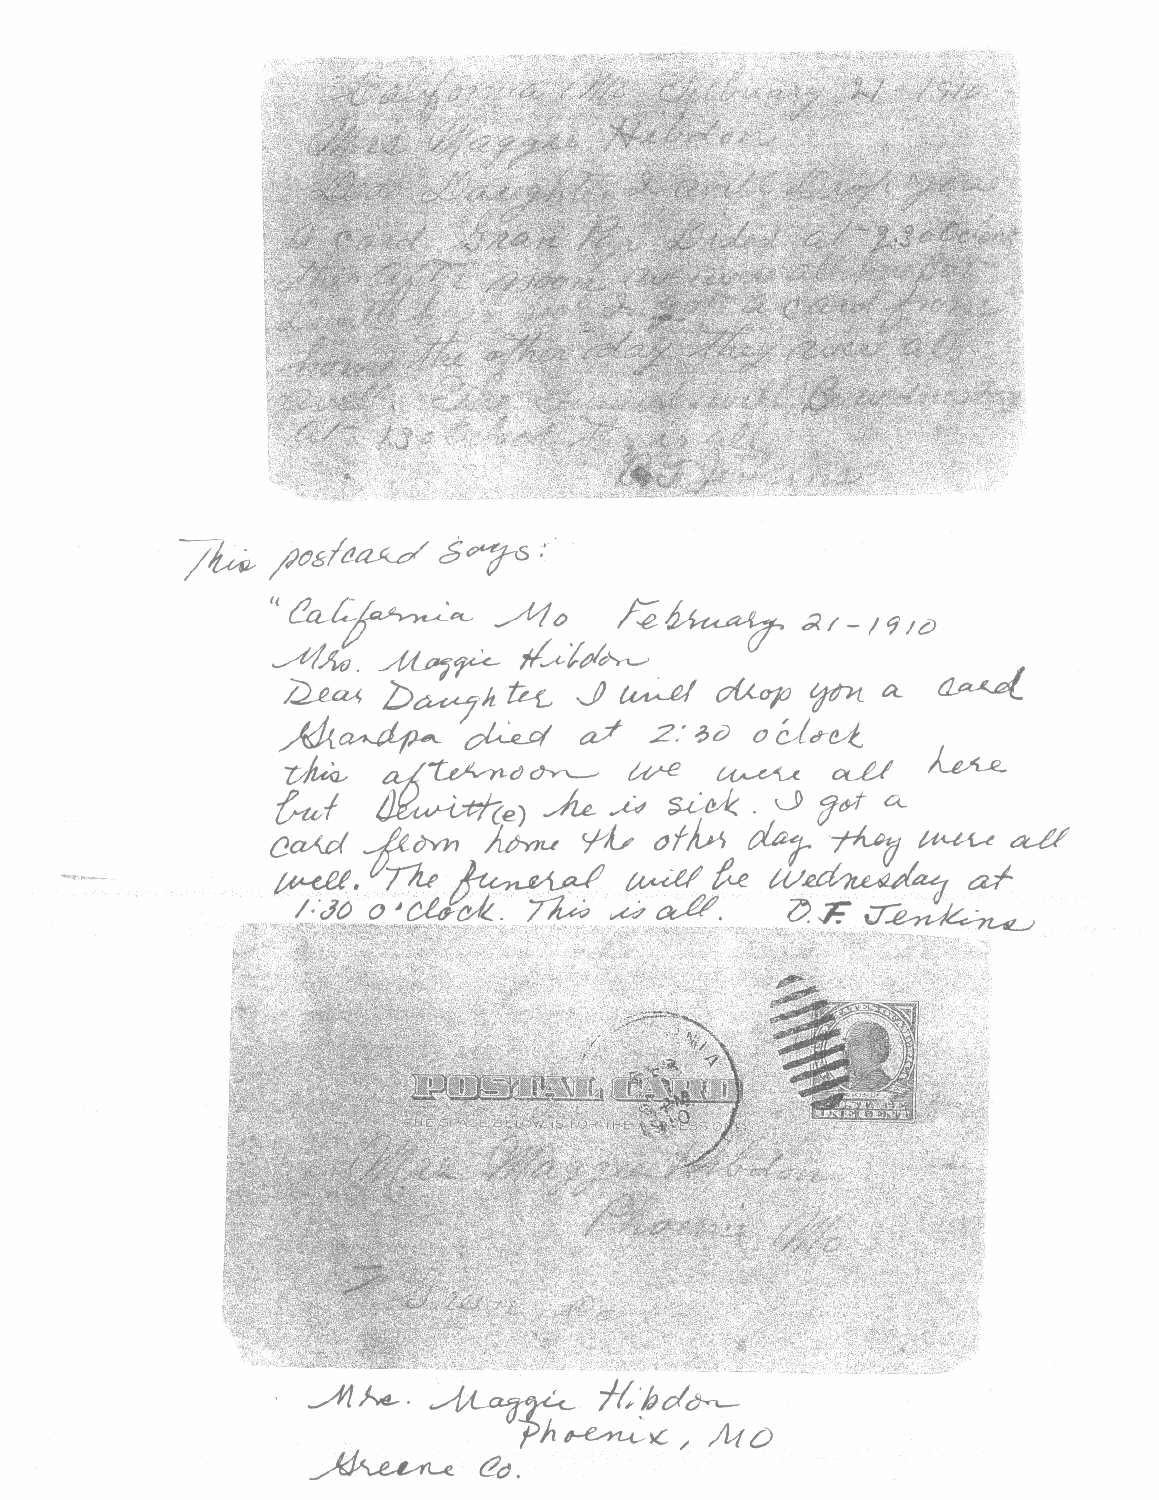 California Mo February 21-1910
Mrs Maggie Hibdon
Daughter I will drop you
a card Gran Pa Dided at 2.30 oclock
this afte noon we were all
I got a card from
home the other day They were all
well. The will Be wednesday
at 1.30 oclock This is all
This postcard says:
"California Mo February 21-1910
Mrs. Maggie Hibdon
Dear Daughter I will drop you a card
Grandpa died at 2:30 o'clock
this afternoon we were all here
but Dewitt(e) he is sick. I got a
card from home the other day. they were all
well. The funeral will be Wednesday at
1:30 o'clock. This is all. D.F. Jenkins
POSTAL CARD
THE SPACE BELOW IS FOR THE
ONE CENT
Mrs Maggie Hibdon
Phoenix Mo
Green Co
Mrs. Maggie Hibdon
Phoenix, MO
Greene Co.